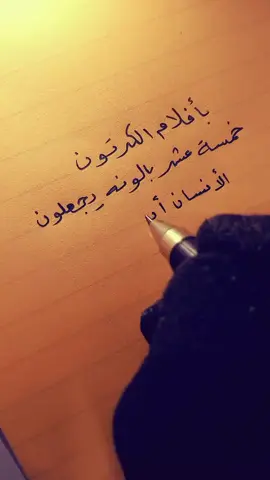 بأفلام الكرتون
خمسة عشر بالونه يجعلون
الأنسان أن